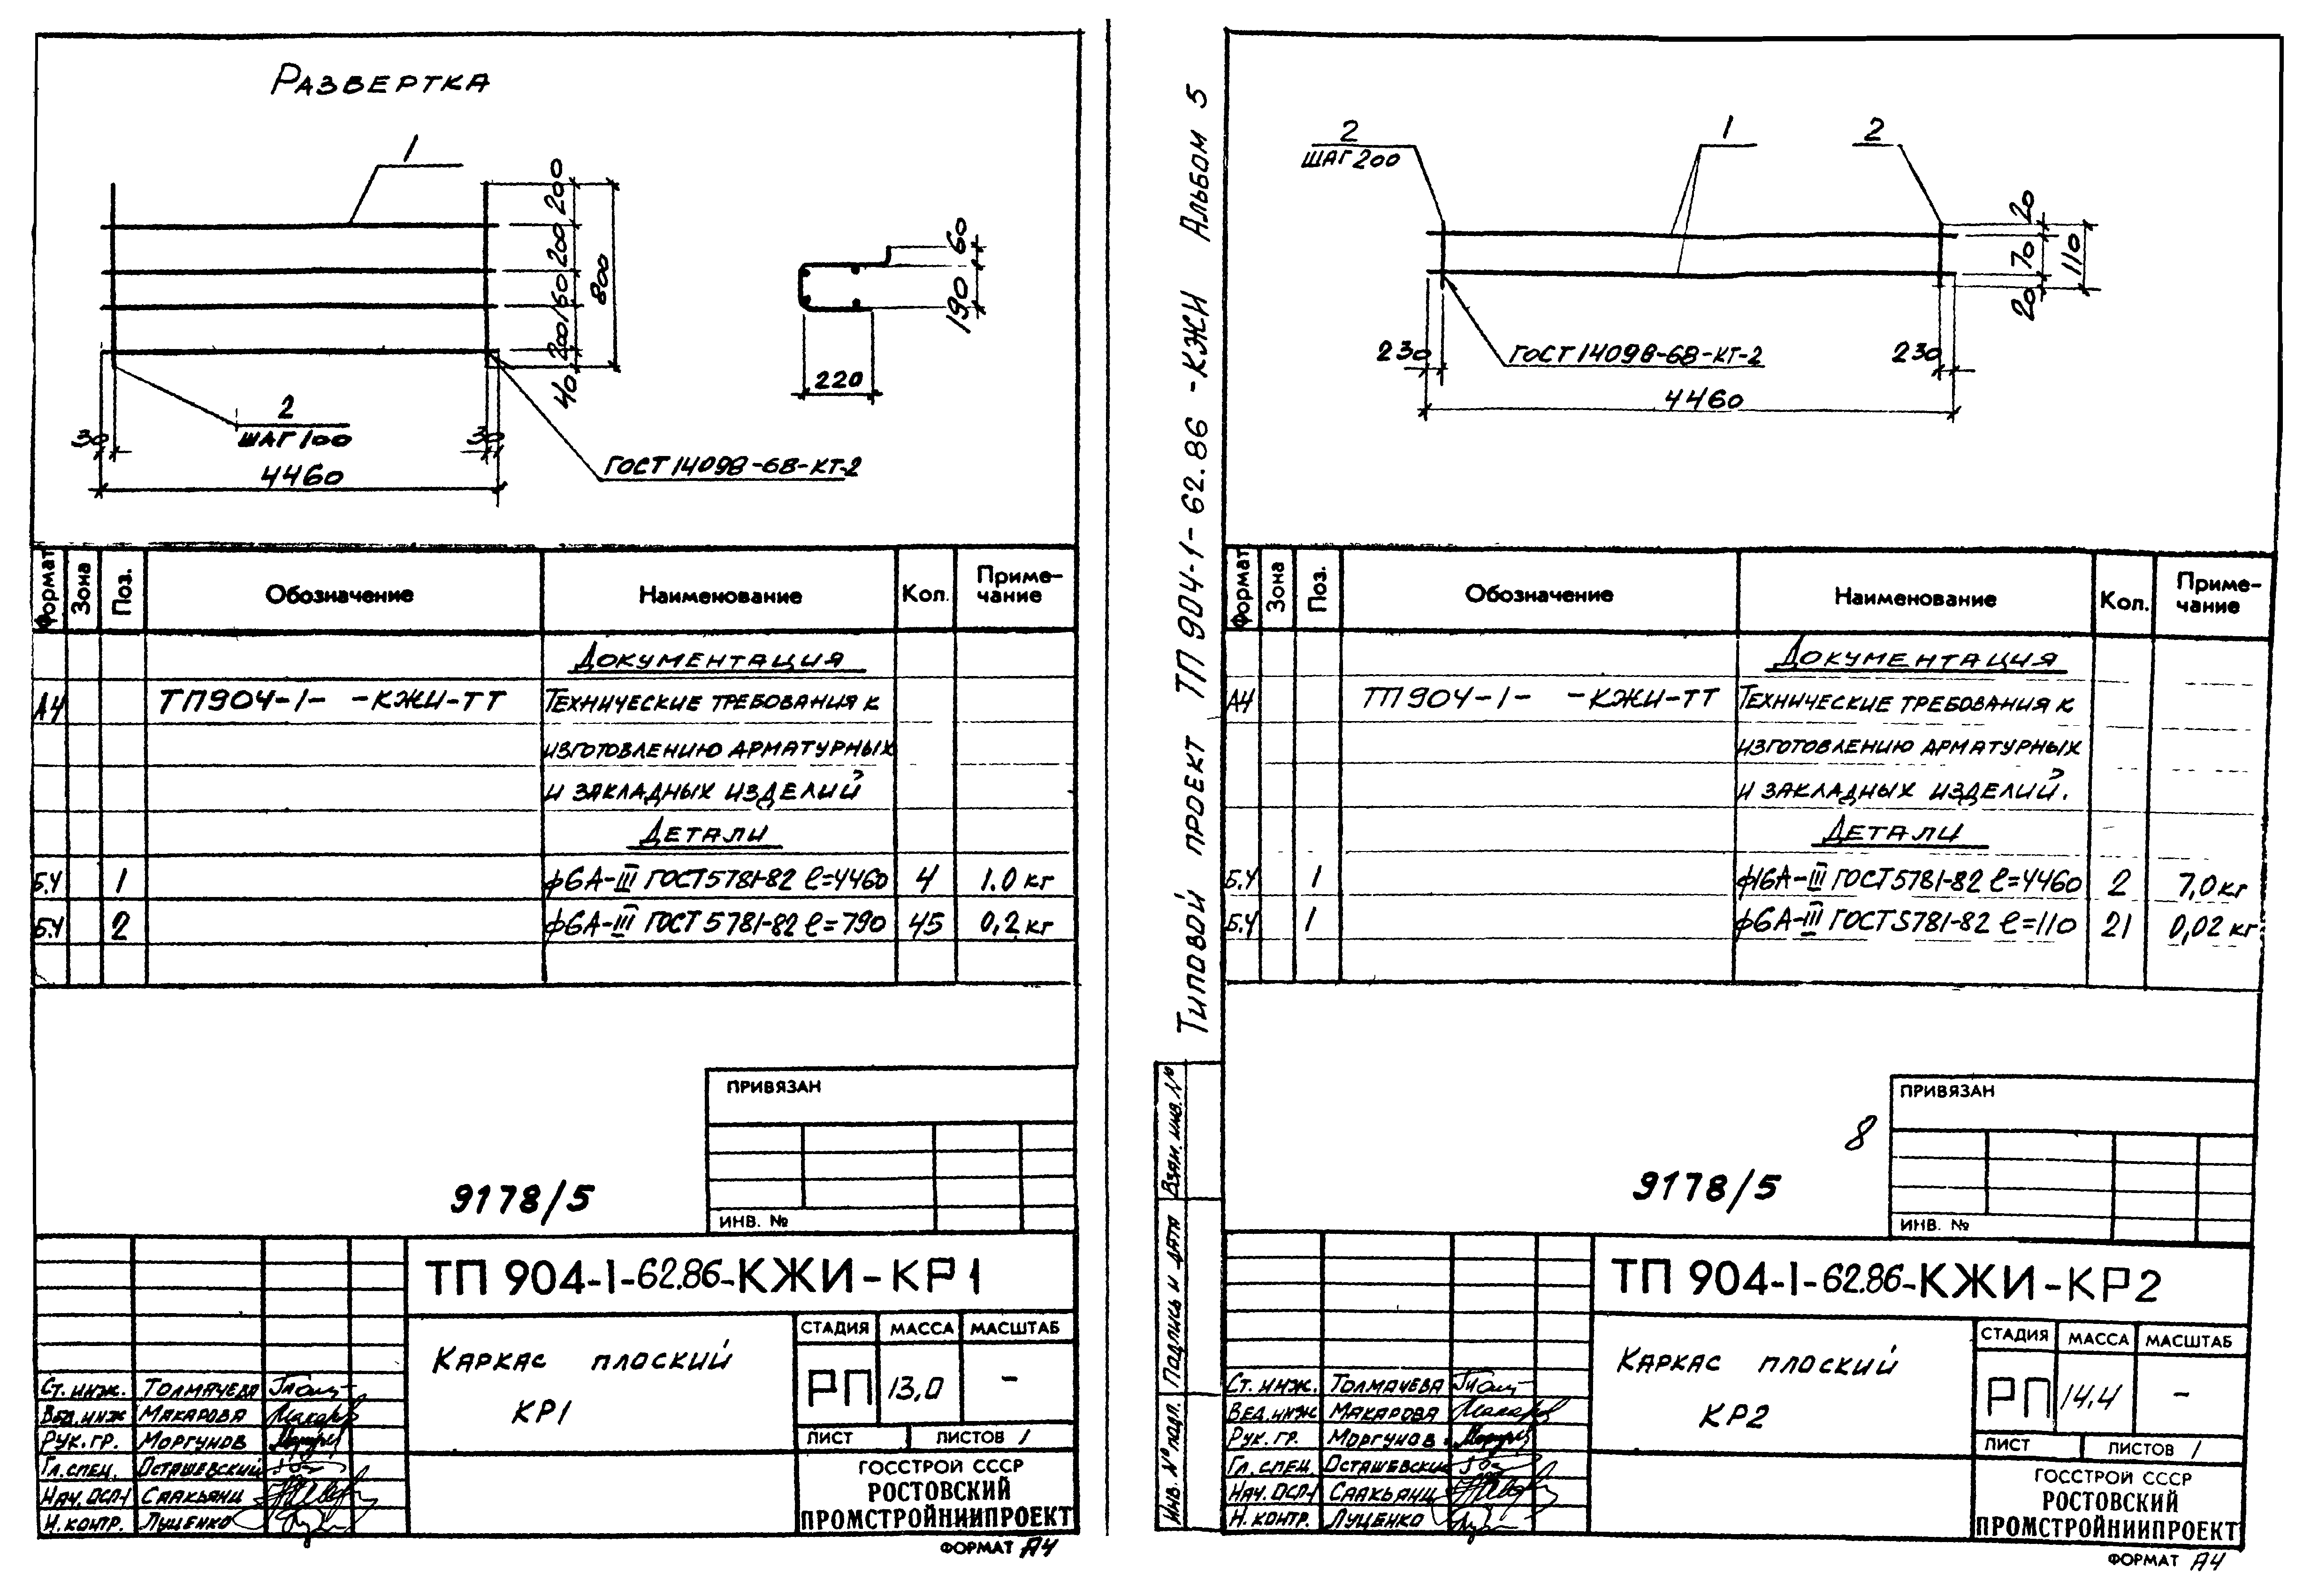 РАЗВЕРТКА
1
200
200
160
200
40
800
2
ШАГ 100
30
30
4460
ГОСТ 14098-68-КТ-2
60
190
220
Формат Зона Поз. Обозначение Наименование Кол. Приме-
чание
ДОКУМЕНТАЦИЯ
А4 ТП904-1- -КЖИ-ТТ ТЕХНИЧЕСКИЕ ТРЕБОВАНИЯ К
ИЗГОТОВЛЕНИЮ АРМАТУРНЫХ
И ЗАКЛАДНЫХ ИЗДЕЛИЙ
ДЕТАЛИ
Б.Ч 1 ф6А-III ГОСТ5781-82 ℓ=4460 4 1.0 кг
Б.Ч 2 ф6А-III ГОСТ5781-82 ℓ=790 45 0,2 кг
ПРИВЯЗАН
ИНВ. №
9178/5
ТП 904-1-62.86-КЖИ-КР1
КАРКАС ПЛОСКИЙ
КР1
СТАДИЯ МАССА МАСШТАБ
РП 13,0 -
ЛИСТ ЛИСТОВ 1
ГОССТРОЙ СССР
РОСТОВСКИЙ
ПРОМСТРОЙНИИПРОЕКТ
СТ. ИНЖ. ТОЛМАЧЕВА
ВЕД.ИНЖ МАКАРОВА
РУК.ГР. МОРГУНОВ
ГЛ.СПЕЦ. ОСТАШЕВСКИЙ
НАЧ.ОСП-1 СААКЬЯНЦ
Н.КОНТР. ЛУЦЕНКО
ФОРМАТ А4
Типовой проект ТП 904-1-62.86-КЖИ Альбом 5
Взам. инв. №
Подпись и дата
Инв. № подл.
2
ШАГ 200
1
2
20
70
20
110
230
230
4460
ГОСТ 14098-68-КТ-2
Формат Зона Поз. Обозначение Наименование Кол. Приме-
чание
ДОКУМЕНТАЦИЯ
А4 ТП904-1- -КЖИ-ТТ ТЕХНИЧЕСКИЕ ТРЕБОВАНИЯ К
ИЗГОТОВЛЕНИЮ АРМАТУРНЫХ
И ЗАКЛАДНЫХ ИЗДЕЛИЙ.
ДЕТАЛИ
Б.Ч 1 ф16А-III ГОСТ5781-82 ℓ=4460 2 7,0 кг
Б.Ч 1 ф6А-III ГОСТ5781-82 ℓ=110 21 0,02 кг
ПРИВЯЗАН
ИНВ. №
8
9178/5
ТП 904-1-62.86-КЖИ-КР2
КАРКАС ПЛОСКИЙ
КР2
СТАДИЯ МАССА МАСШТАБ
РП 14,4 -
ЛИСТ ЛИСТОВ 1
ГОССТРОЙ СССР
РОСТОВСКИЙ
ПРОМСТРОЙНИИПРОЕКТ
СТ. ИНЖ. ТОЛМАЧЕВА
ВЕД.ИНЖ МАКАРОВА
РУК.ГР. МОРГУНОВ
ГЛ.СПЕЦ. ОСТАШЕВСКИЙ
НАЧ.ОСП-1 СААКЬЯНЦ
Н.КОНТР. ЛУЦЕНКО
ФОРМАТ А4